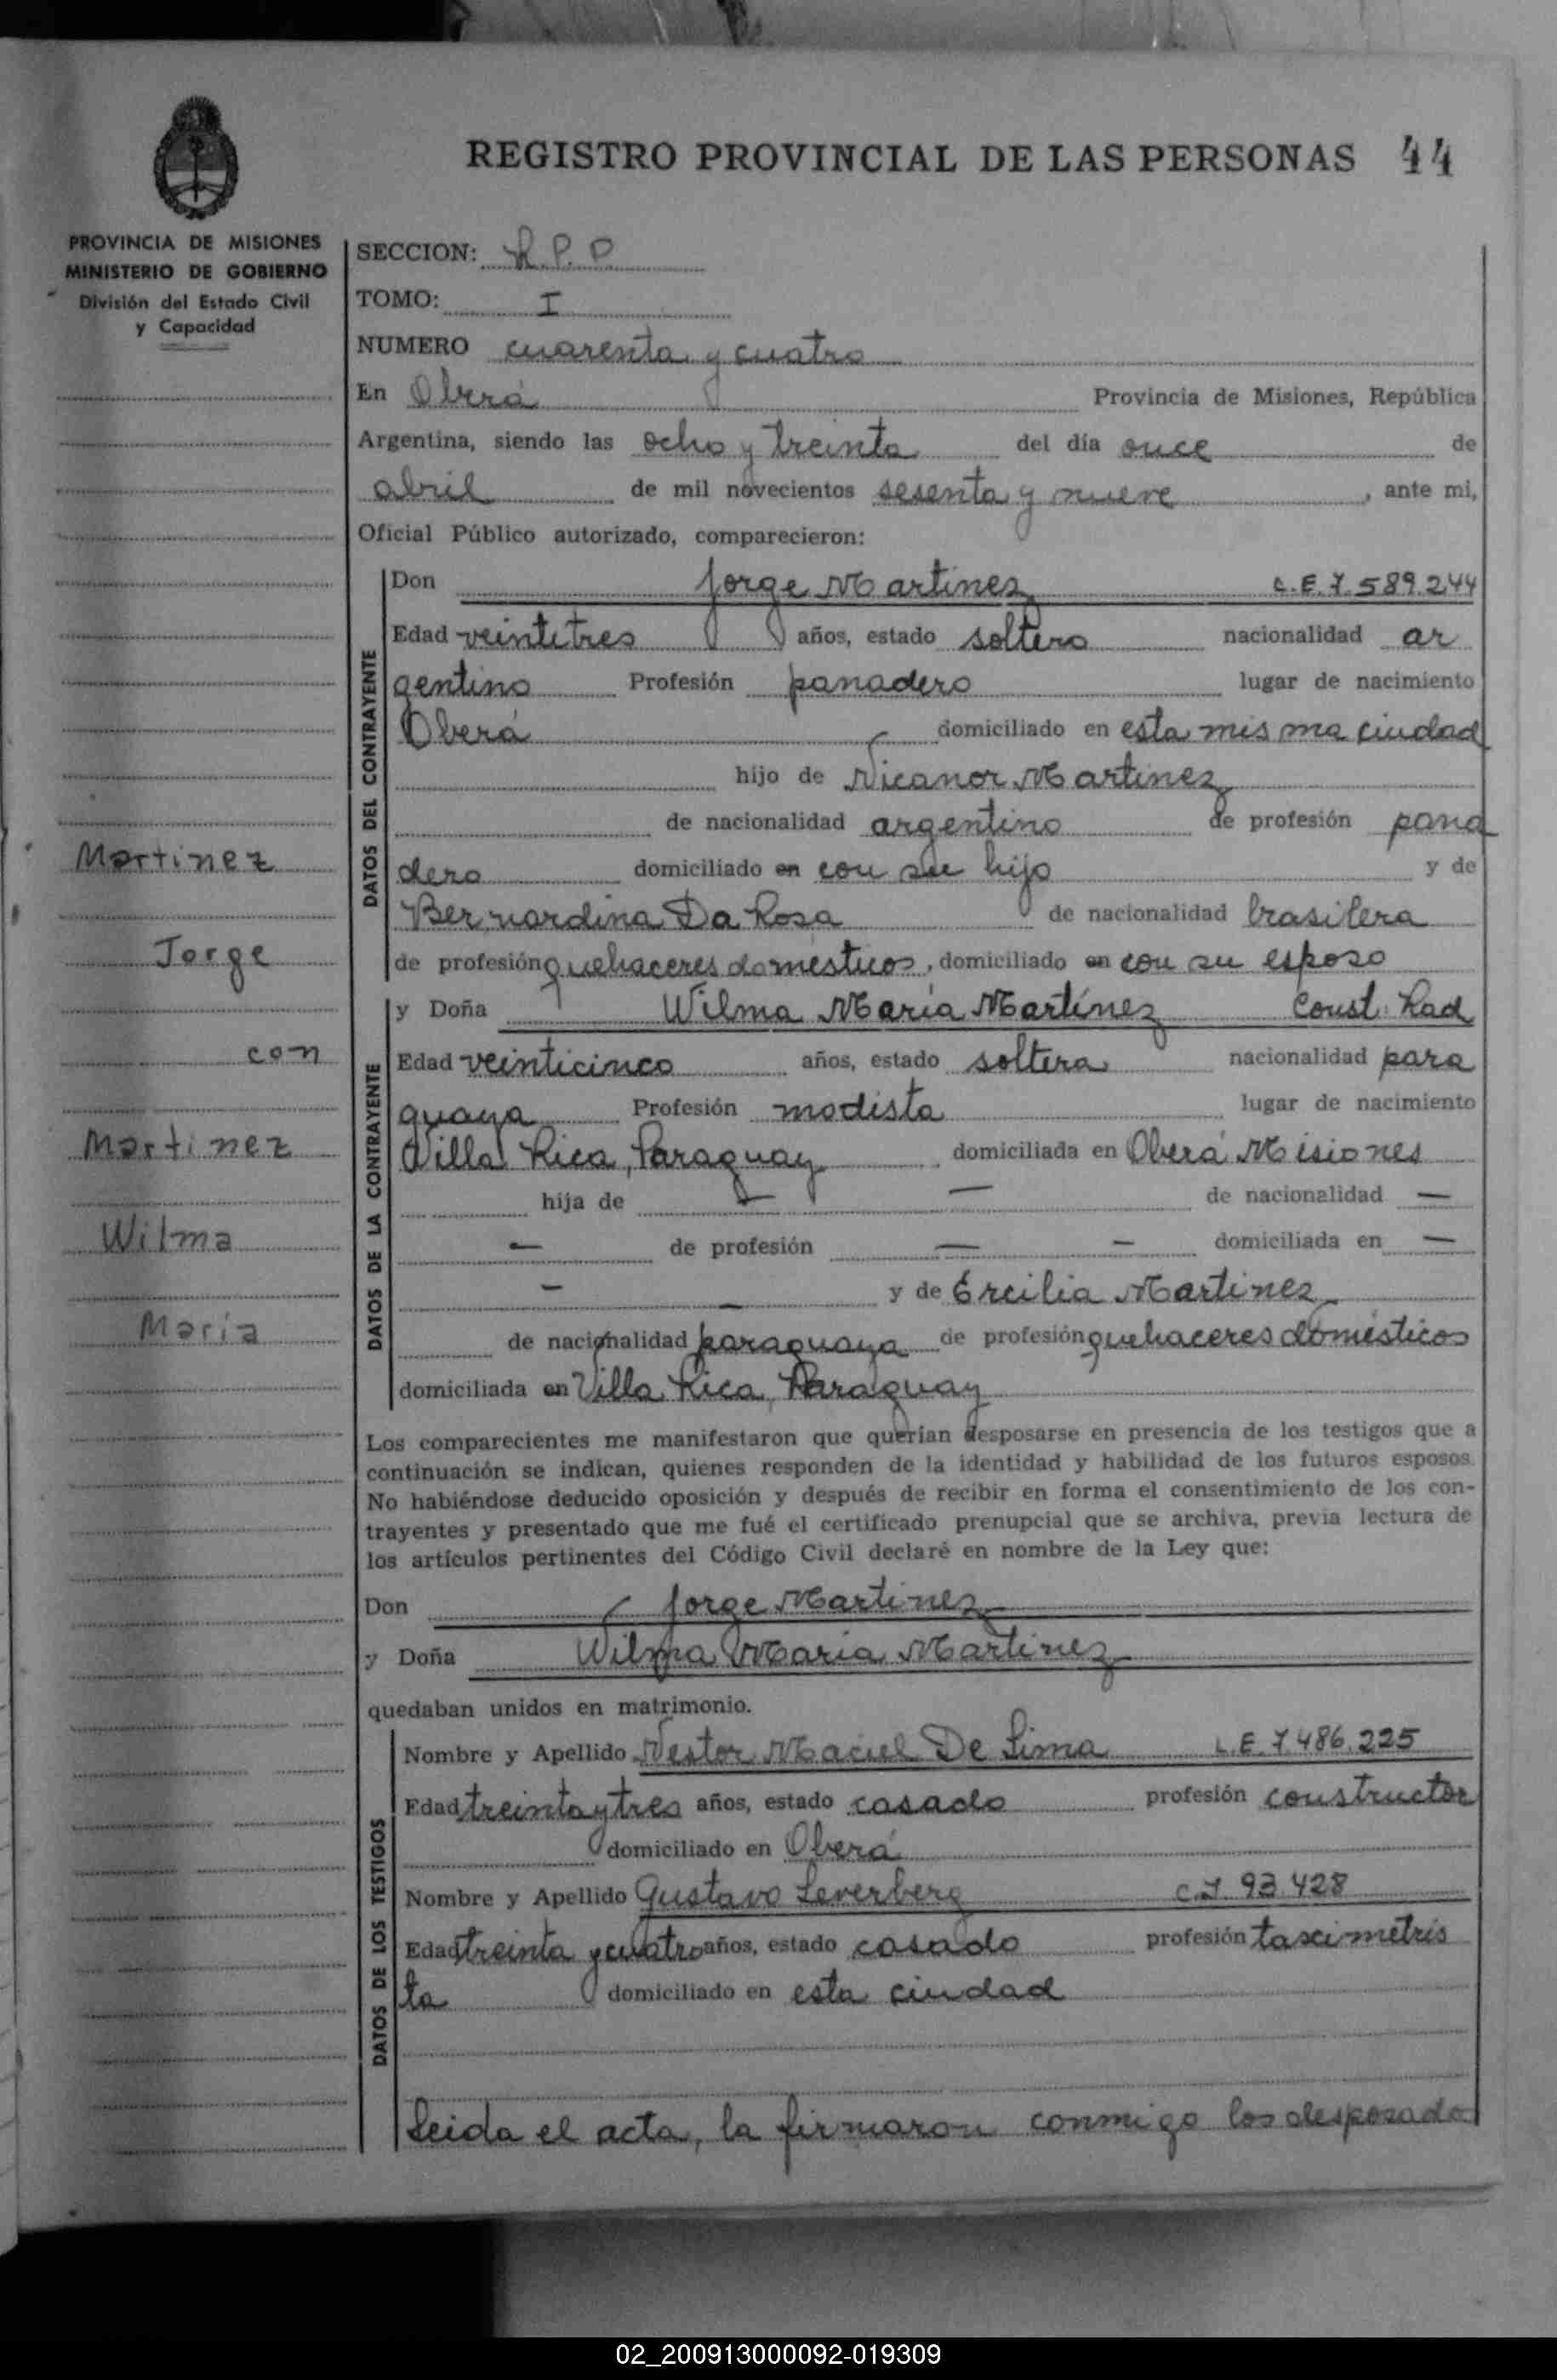 REGISTRO PROVINCIAL DE LAS PERSONAS 44
PROVINCIA DE MISIONES
MINISTERIO DE GOBIERNO
División del Estado Civil
y Capacidad
Martinez
Jorge
con
Martinez
Wilma
María
SECCION: R.P.P
TOMO: I
NUMERO cuarenta y cuatro
En Oberá Provincia de Misiones, República
Argentina, siendo las ocho y treinta del día once de
abril de mil novecientos sesenta y nueve, ante mi,
Oficial Público autorizado, comparecieron:
DATOS DEL CONTRAYENTE
Don Jorge Martinez L.E. 7.589.244
Edad veintitres años, estado soltero nacionalidad ar
gentino Profesión panadero lugar de nacimiento
Oberá domiciliado en esta misma ciudad
hijo de Nicanor Martinez
de nacionalidad argentino de profesión pana
dero domiciliado en con su hijo y de
Bernardina Da Rosa de nacionalidad brasilera
de profesión quehaceres domésticos, domiciliado en con su esposo
DATOS DE LA CONTRAYENTE
y Doña Wilma María Martínez Const. Rad
Edad veinticinco años, estado soltera nacionalidad para
guaya Profesión modista lugar de nacimiento
Villa Rica, Paraguay domiciliada en Oberá Misiones
hija de — — de nacionalidad —
— de profesión — — domiciliada en —
— — y de Ercilia Martinez
de nacionalidad paraguaya de profesión quehaceres domésticos
domiciliada en Villa Rica, Paraguay
Los comparecientes me manifestaron que querían desposarse en presencia de los testigos que a
continuación se indican, quienes responden de la identidad y habilidad de los futuros esposos.
No habiéndose deducido oposición y después de recibir en forma el consentimiento de los con-
trayentes y presentado que me fué el certificado prenupcial que se archiva, previa lectura de
los artículos pertinentes del Código Civil declaré en nombre de la Ley que:
Don Jorge Martinez
y Doña Wilma María Martinez
quedaban unidos en matrimonio.
DATOS DE LOS TESTIGOS
Nombre y Apellido Nestor Maciel De Lima L.E. 7.486.225
Edad treinta y tres años, estado casado profesión constructor
domiciliado en Oberá
Nombre y Apellido Gustavo Leverberg C.I. 93.428
Edad treinta y cuatro años, estado casado profesión taximetris
ta domiciliado en esta ciudad
Leida el acta, la firmaron conmigo los desposado
02_200913000092-019309